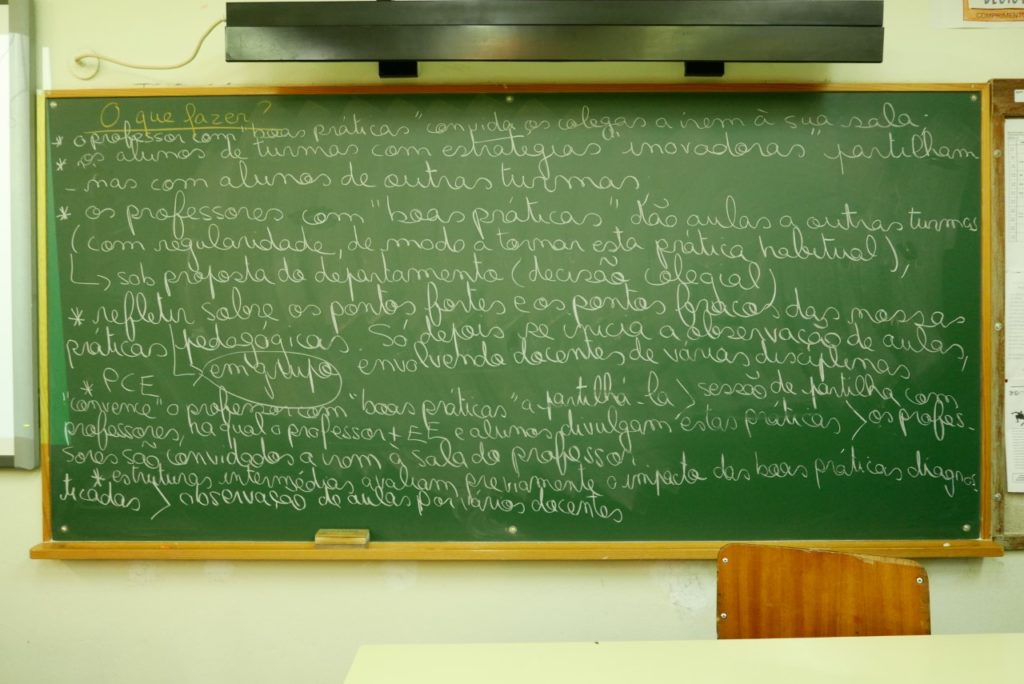 O que fazer?
* o professor com "boas práticas" convida os colegas a irem à sua sala.
* os alunos de turmas com estratégias "inovadoras" partilham
- nas com alunos de outras turmas
* os professores com "boas práticas" dão aulas a outras turmas
(com regularidade, de modo a tornar esta prática habitual),
↳ sob proposta do departamento (decisão colegial)
* refletir sobre os pontos fortes e os pontos fracos das nossas
práticas pedagógicas Só depois se inicia a observação de aulas,
↳ em grupo envolvendo docentes de várias disciplinas
* PCE
"convence" o professor com "boas práticas" a partilhá-la > sessão de partilha com
professores, na qual o professor + EE e alunos divulgam estas práticas > os profes-
sores são convidados a irem à sala do professor
* estruturas intermédias avaliam previamente o impacto das boas práticas diagnos-
ticadas > observação de aulas por vários docentes
COMPRIMENTO